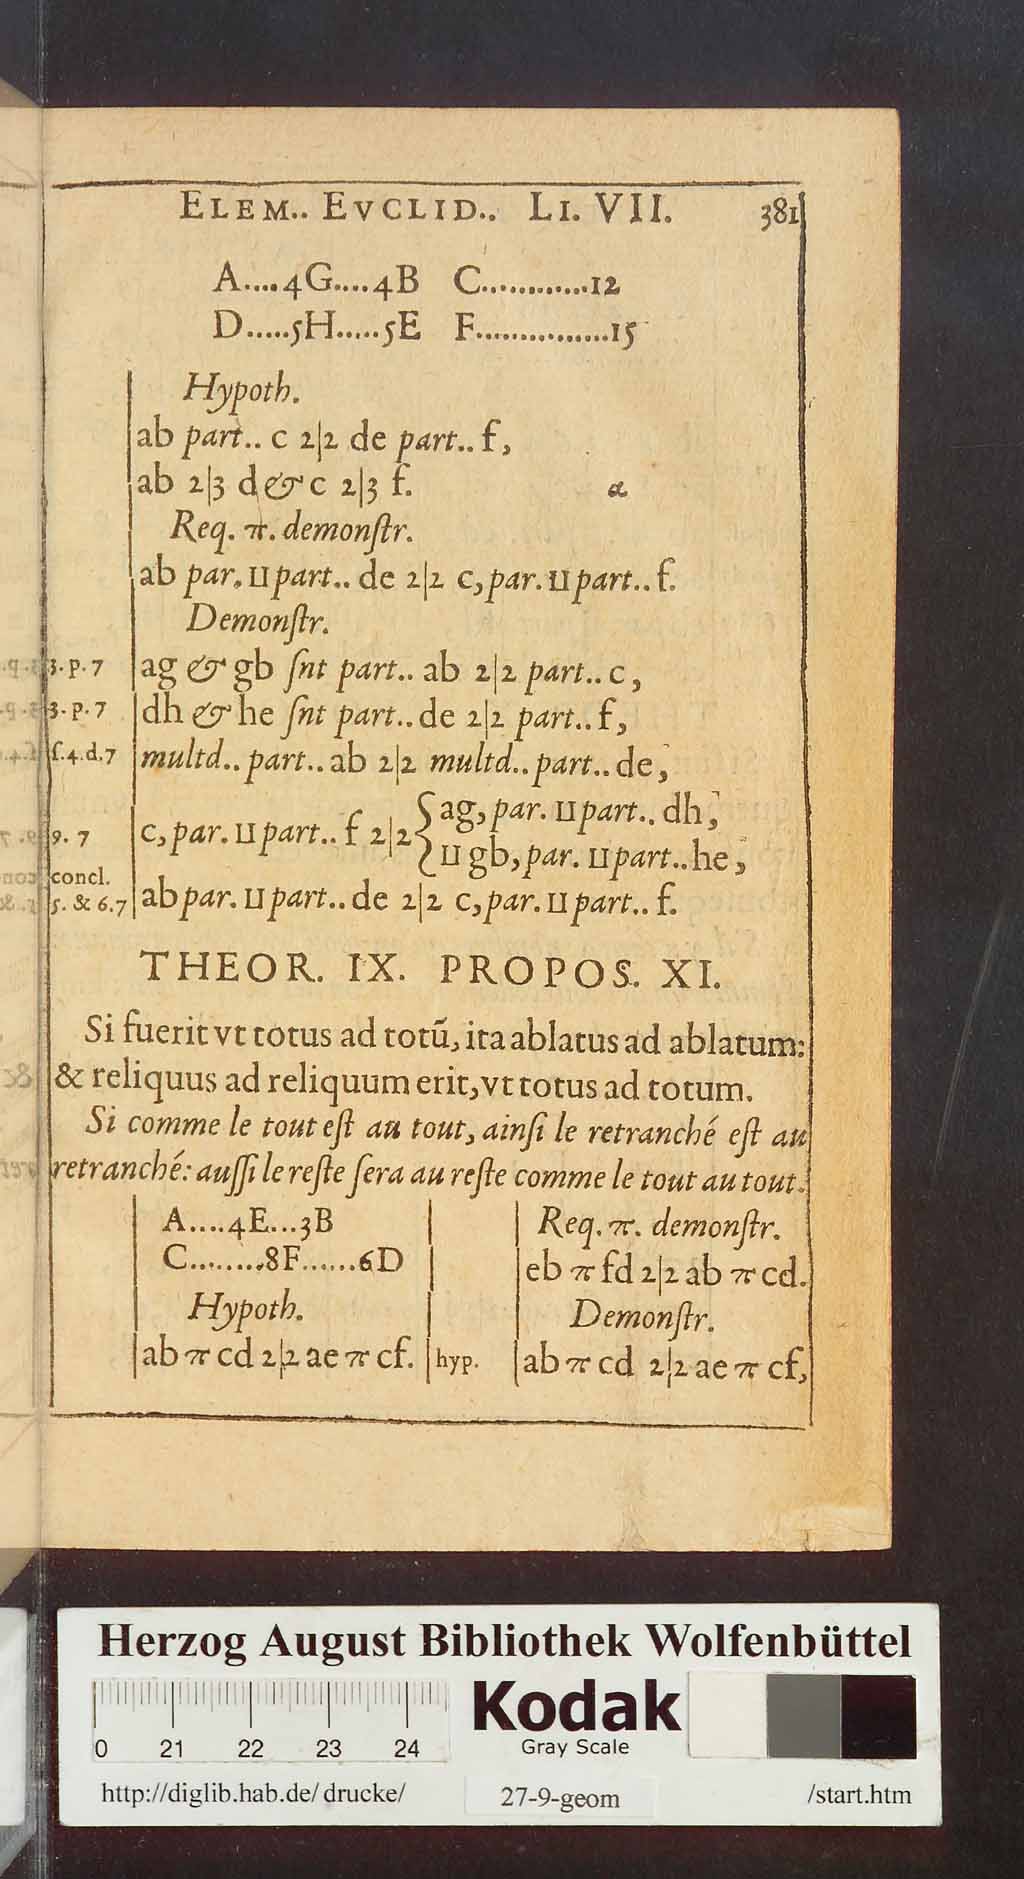 ELEM.. EVCLID.. LI. VII. 381
A....4G....4B C............12
D.....5H.....5E F...............15
Hypoth.
ab part.. c 2|2 de part.. f,
ab 2|3 d & c 2|3 f. a
Req. π. demonſtr.
ab par. II part.. de 2|2 c, par. II part.. f.
Demonſtr.
3. p. 7 ag & gb ſnt part.. ab 2|2 part.. c,
3. p. 7 dh & he ſnt part.. de 2|2 part.. f,
f. 4. d. 7 multd.. part.. ab 2|2 multd.. part.. de,
9. 7 c, par. II part.. f 2|2 { ag, par. II part.. dh,
II gb, par. II part.. he,
concl.
5. & 6. 7 ab par. II part.. de 2|2 c, par. II part.. f.
THEOR. IX. PROPOS. XI.
Si fuerit vt totus ad totũ, ita ablatus ad ablatum:
& reliquus ad reliquum erit, vt totus ad totum.
Si comme le tout eſt au tout, ainſi le retranché eſt au
retranché: auſſi le reſte ſera au reſte comme le tout au tout.
A....4E...3B
C........8F......6D
Hypoth.
ab π cd 2|2 ae π cf.
Req. π. demonſtr.
eb π fd 2|2 ab π cd.
Demonſtr.
hyp. ab π cd 2|2 ae π cf,
Herzog August Bibliothek Wolfenbüttel
0 21 22 23 24
Kodak
Gray Scale
http://diglib.hab.de/ drucke/ 27-9-geom /start.htm